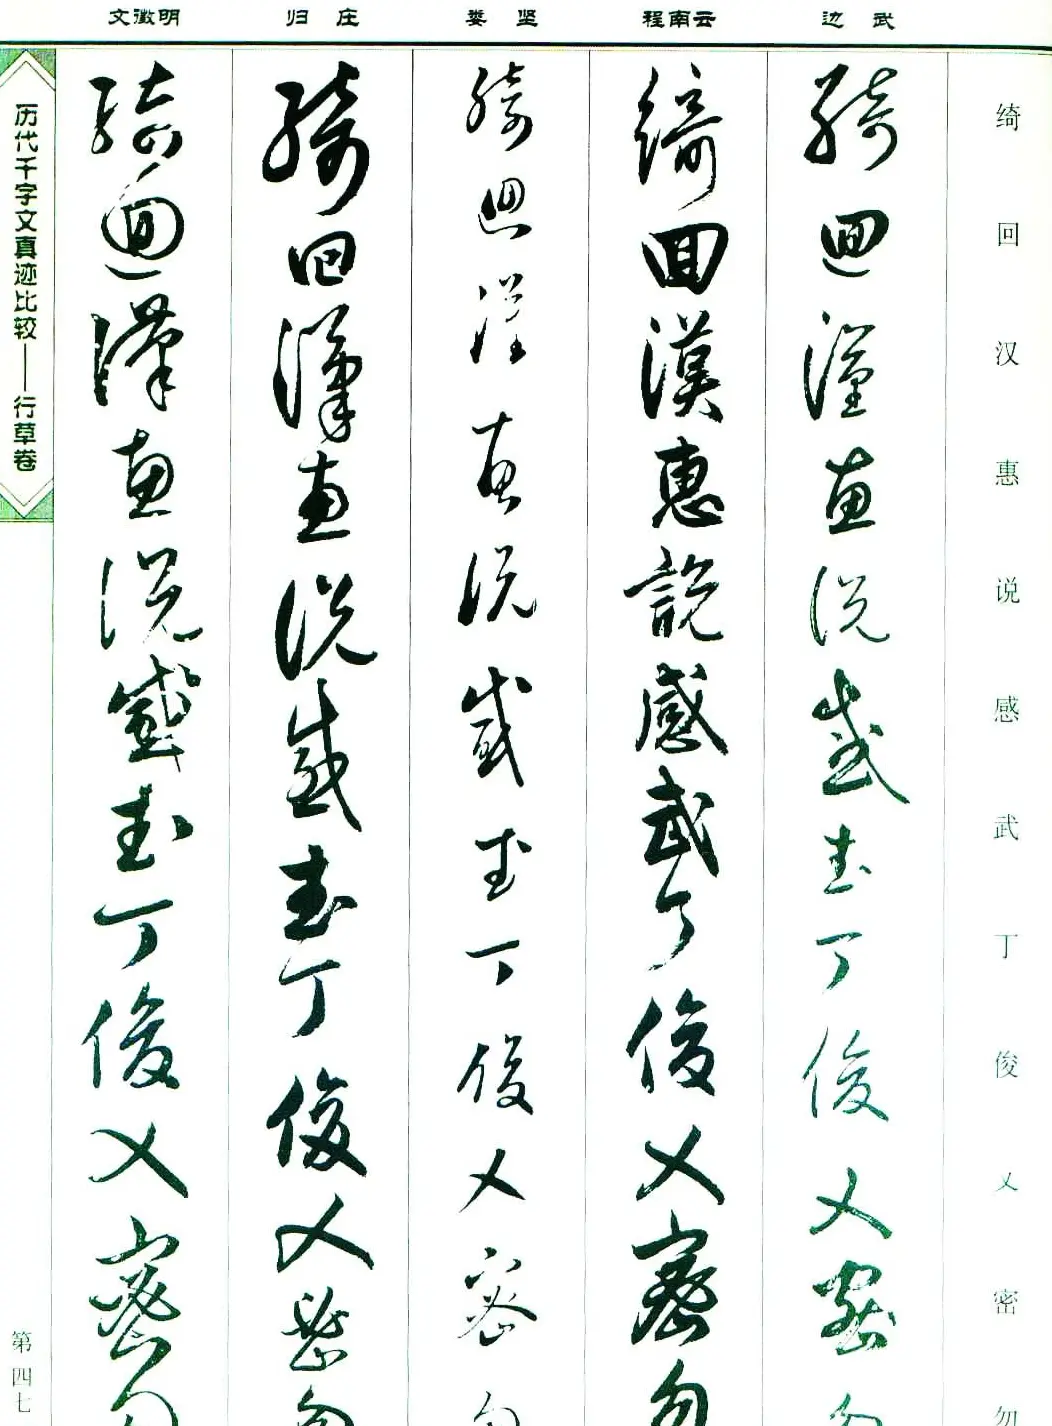 文徵明
归 庄
娄 坚
程南云
边 武
绮回汉惠说感武丁俊乂密勿
綺迴漢惠說感武丁俊乂密勿
綺回漢惠說感武丁俊乂密勿
綺迴漢惠說感武丁俊乂密勿
綺回漢惠說感武丁俊乂密勿
綺迴漢惠說感武丁俊乂密勿
历代千字文真迹比较——行草卷
第四七